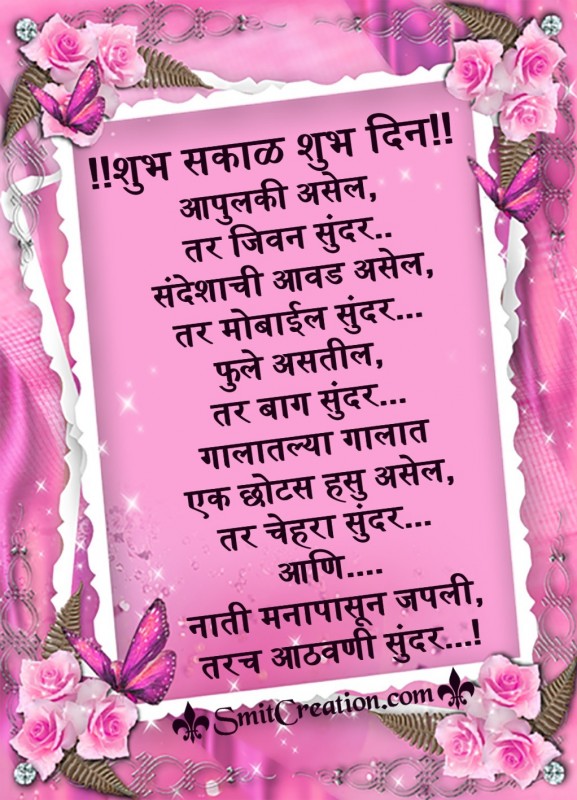 !!शुभ सकाळ शुभ दिन!!
आपुलकी असेल,
तर जिवन सुंदर..
संदेशाची आवड असेल,
तर मोबाईल सुंदर...
फुले असतील,
तर बाग सुंदर...
गालातल्या गालात
एक छोटस हसु असेल,
तर चेहरा सुंदर...
आणि....
नाती मनापासून जपली,
तरच आठवणी सुंदर...!
SmitCreation.com